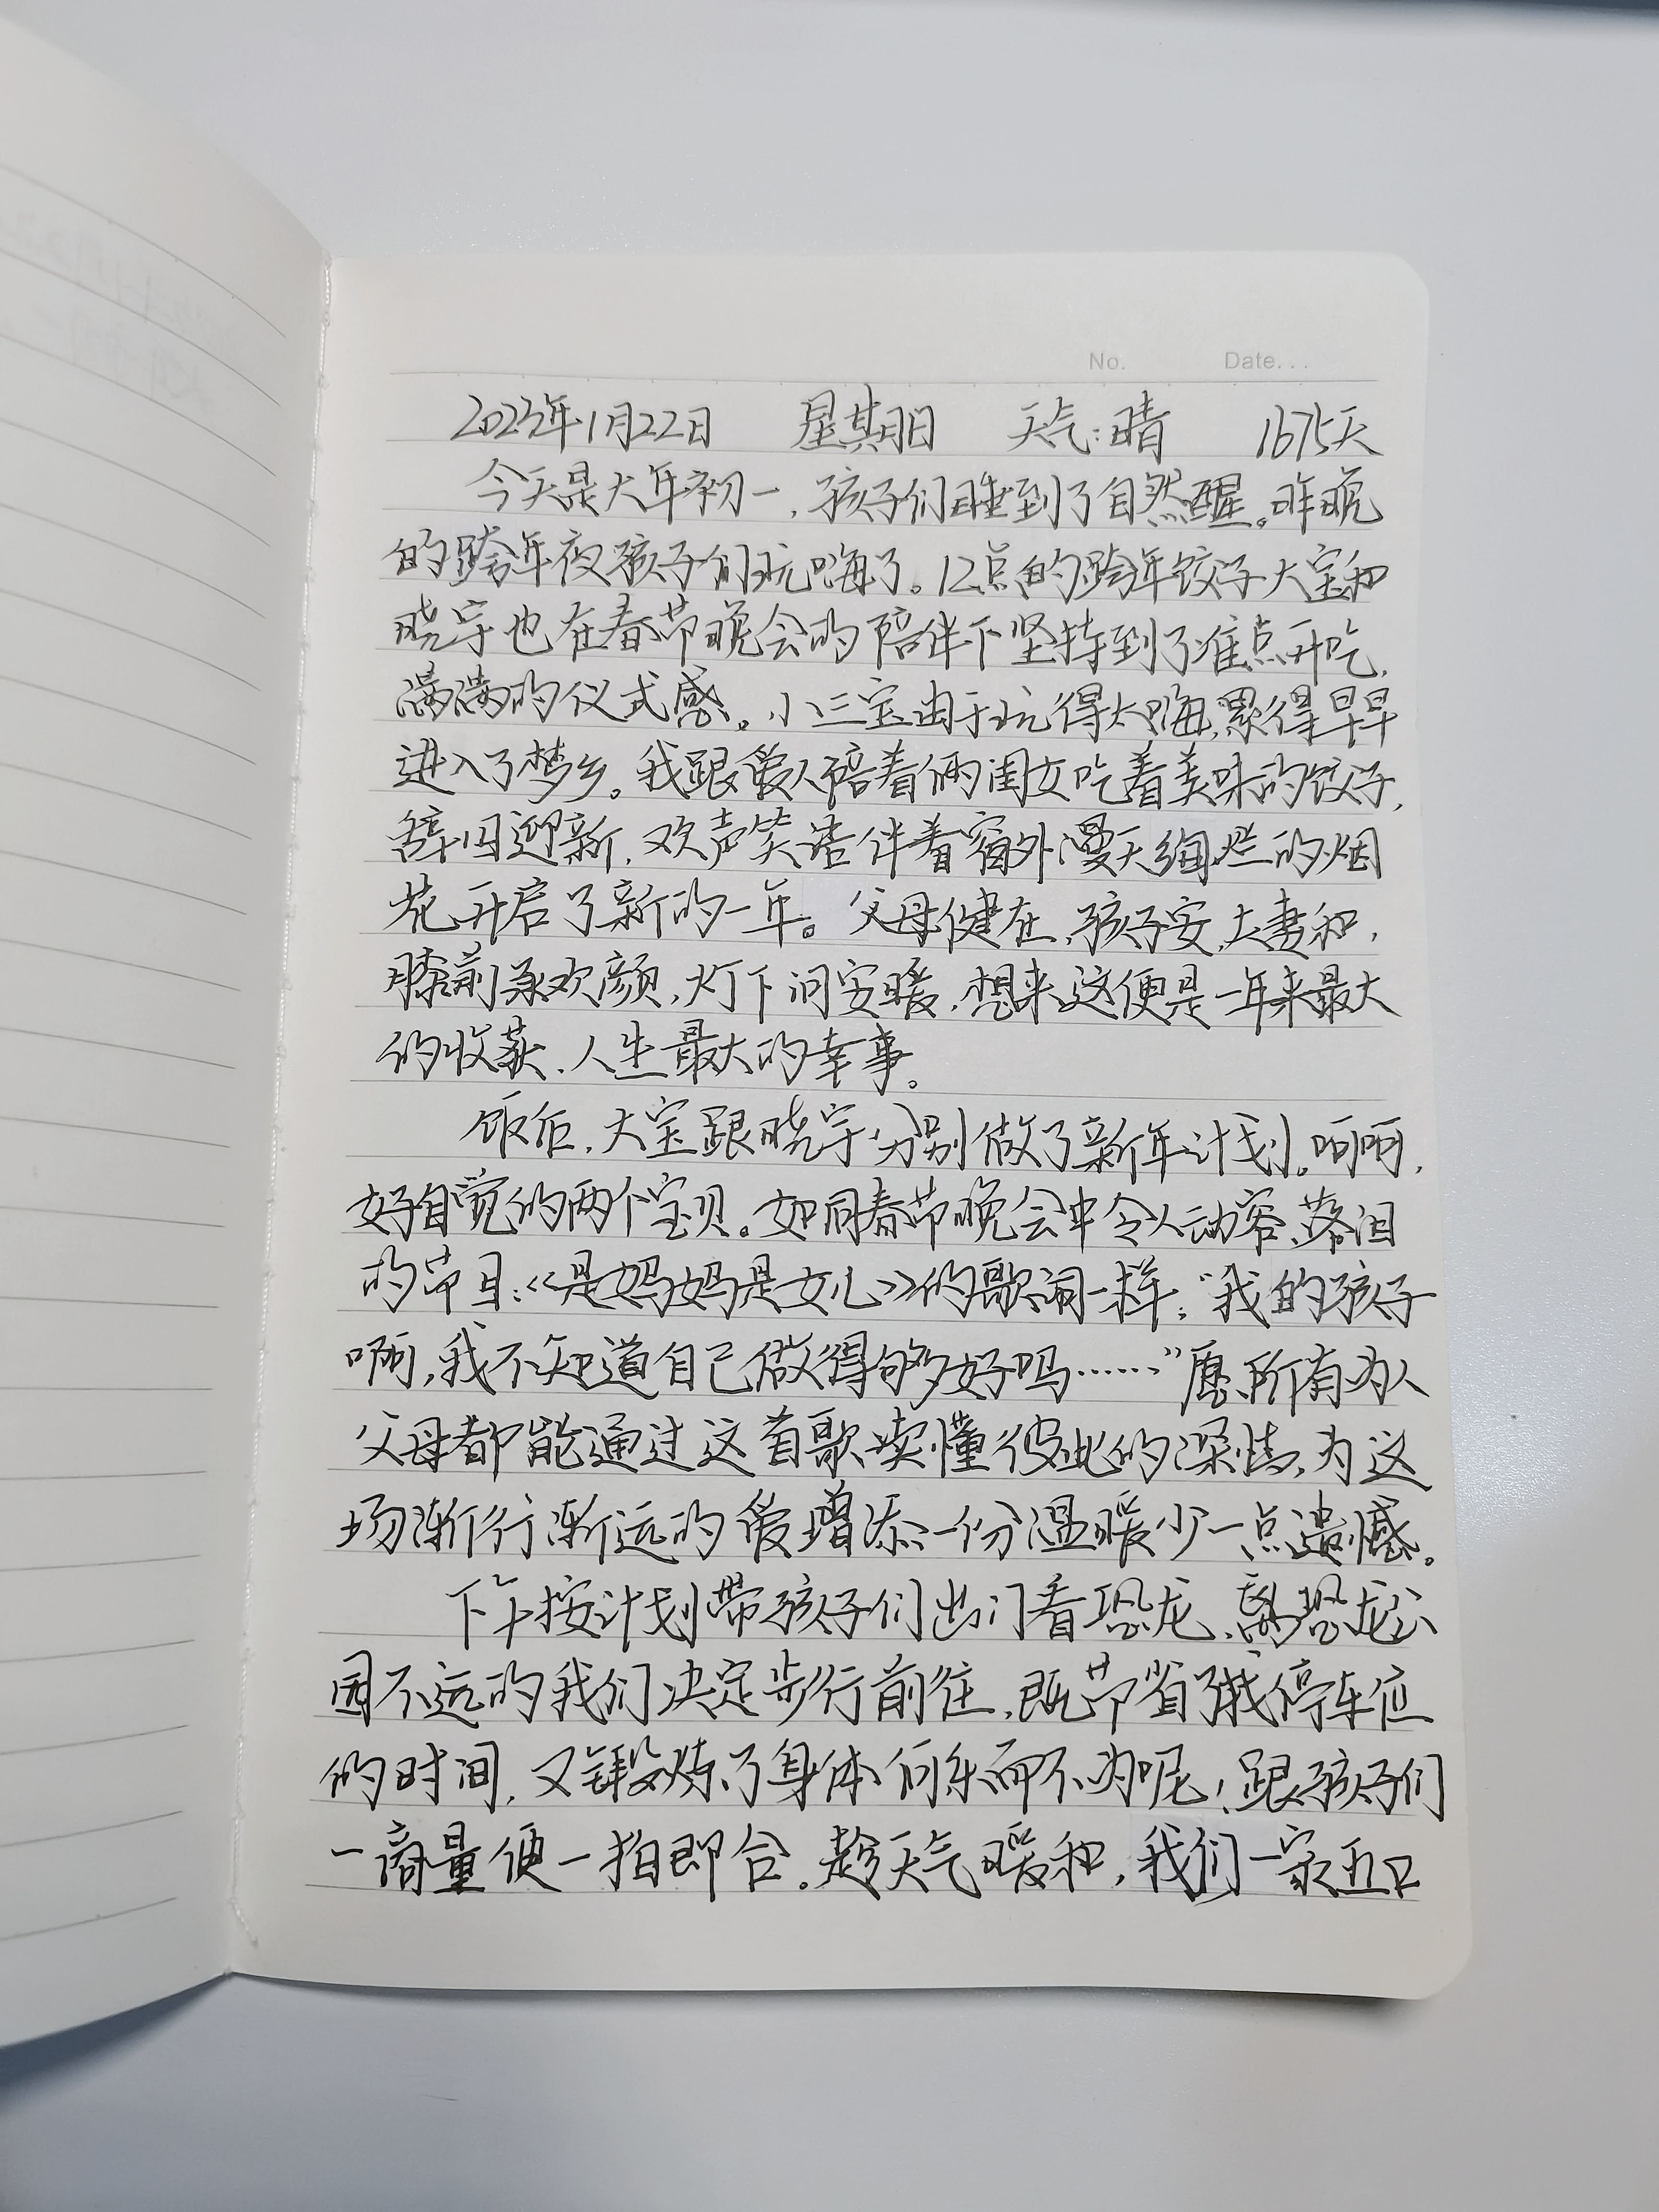 No.    Date. . .
2023年1月22日 星期日 天气:晴 1675天
今天是大年初一,孩子们睡到了自然醒。昨晚
的跨年夜孩子们玩嗨了。12点的跨年饺子大宝和
晓宇也在春节晚会的陪伴下坚持到了准点开吃,
满满的仪式感。小三宝由于玩得太嗨,累得早早
进入了梦乡。我跟爱人陪着俩闺女吃着美味的饺子,
辞旧迎新,欢声笑语伴着窗外漫天绚烂的烟
花开启了新的一年。父母健在,孩子安,夫妻和,
膝前承欢颜,灯下问安暖,想来这便是一年来最大
的收获、人生最大的幸事。
饭后,大宝跟晓宇分别做了新年计划。呵呵,
好自觉的两个宝贝。如同春节晚会中令人动容、落泪
的节目:《是妈妈是女儿》的歌词一样:“我的孩子
啊,我不知道自己做得够好吗……”愿所有为人
父母都能通过这首歌读懂彼此的深情,为这
场渐行渐远的爱增添一份温暖少一点遗憾。
下午按计划带孩子们出门看恐龙,离恐龙公
园不远的我们决定步行前往,既节省了找停车位
的时间,又锻炼了身体何乐而不为呢!跟孩子们
一商量便一拍即合。趁天气暖和,我们一家五口